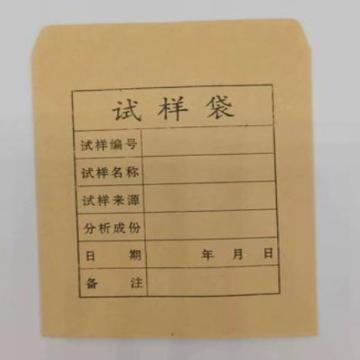 试样袋
试样编号
试样名称
试样来源
分析成份
日期 年月日
备注